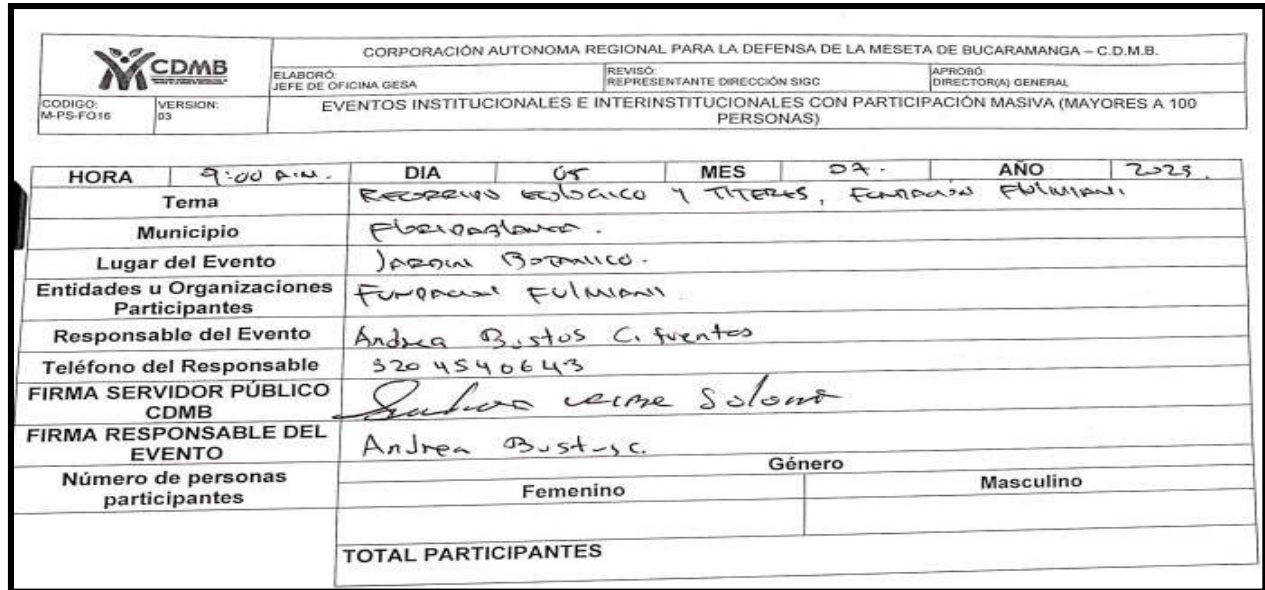 CDMB
CORPORACIÓN AUTONOMA REGIONAL PARA LA DEFENSA DE LA MESETA DE BUCARAMANGA – C.D.M.B.
ELABORÓ: JEFE DE OFICINA GESA
REVISÓ: REPRESENTANTE DIRECCIÓN SIGC
APROBÓ: DIRECTOR(A) GENERAL
CODIGO: M-PS-FO16
VERSION: 03
EVENTOS INSTITUCIONALES E INTERINSTITUCIONALES CON PARTICIPACIÓN MASIVA (MAYORES A 100
PERSONAS)
HORA 9:00 A.M. DIA 05 MES 07. AÑO 2023.
Tema RECORRIDO ECOLOGICO Y TITERES, FUNDACION FULMIANI
Municipio FLORIDABLANCA.
Lugar del Evento JARDIN BOTANICO.
Entidades u Organizaciones
Participantes FUNDACION FULMIANI
Responsable del Evento Andrea Bustos Cifuentes
Teléfono del Responsable 320 4540643
FIRMA SERVIDOR PÚBLICO
CDMB
FIRMA RESPONSABLE DEL
EVENTO Andrea Bustos c.
Número de personas
participantes
Género
Femenino Masculino
TOTAL PARTICIPANTES